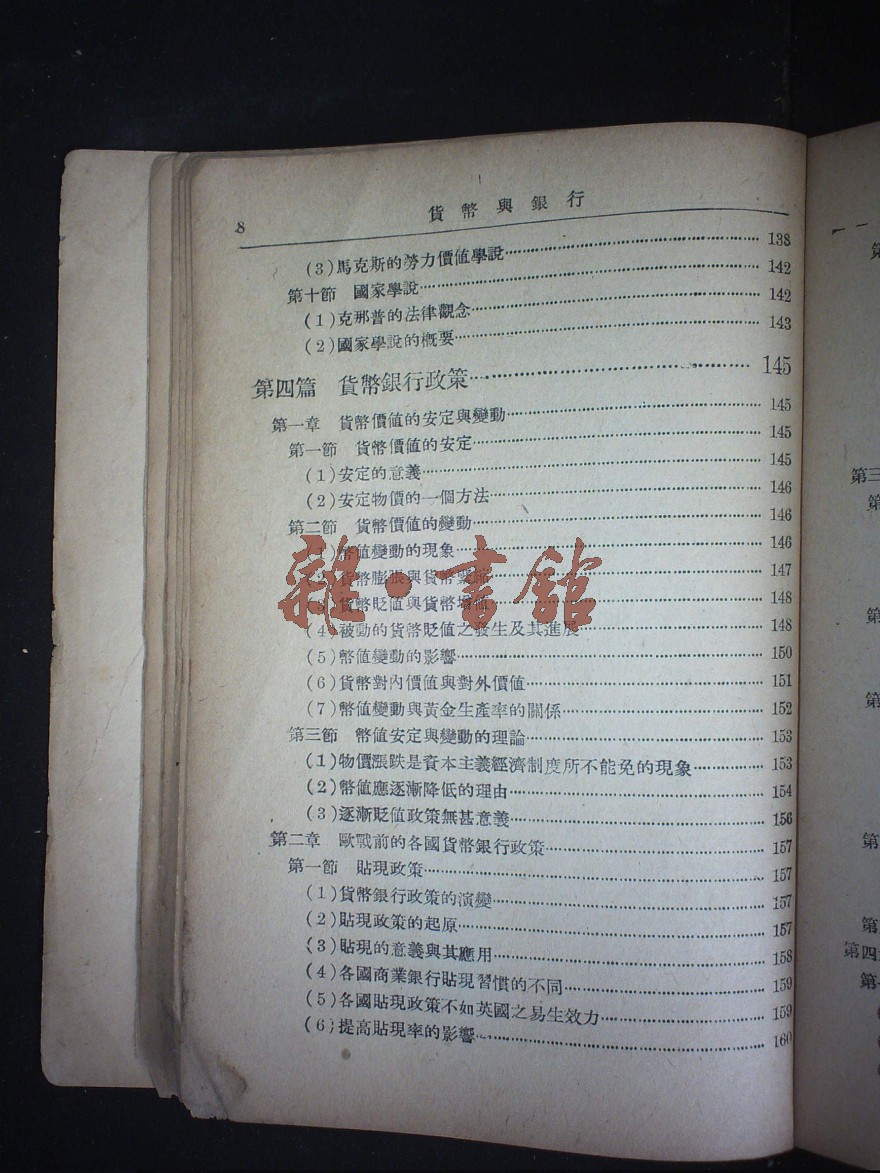 8
貨幣與銀行
(3)馬克斯的勞力價值學說 138
第十節 國家學說 142
(1)克那普的法律觀念 142
(2)國家學說的概要 143
第四篇 貨幣銀行政策 145
第一章 貨幣價值的安定與變動 145
第一節 貨幣價值的安定 145
(1)安定的意義 145
(2)安定物價的一個方法 146
第二節 貨幣價值的變動 146
(1)幣值變動的現象 146
(2)貨幣膨脹與貨幣緊縮 147
(3)貨幣貶值與貨幣增值 148
(4)被動的貨幣貶值之發生及其進展 148
(5)幣值變動的影響 150
(6)貨幣對內價值與對外價值 151
(7)幣值變動與黃金生產率的關係 152
第三節 幣值安定與變動的理論 153
(1)物價漲跌是資本主義經濟制度所不能免的現象 153
(2)幣值應逐漸降低的理由 154
(3)逐漸貶值政策無甚意義 156
第二章 歐戰前的各國貨幣銀行政策 157
第一節 貼現政策 157
(1)貨幣銀行政策的演變 157
(2)貼現政策的起原 157
(3)貼現的意義與其應用 158
(4)各國商業銀行貼現習慣的不同 159
(5)各國貼現政策不如英國之易生效力 159
(6)提高貼現率的影響 160
雜·書館
第三
第四